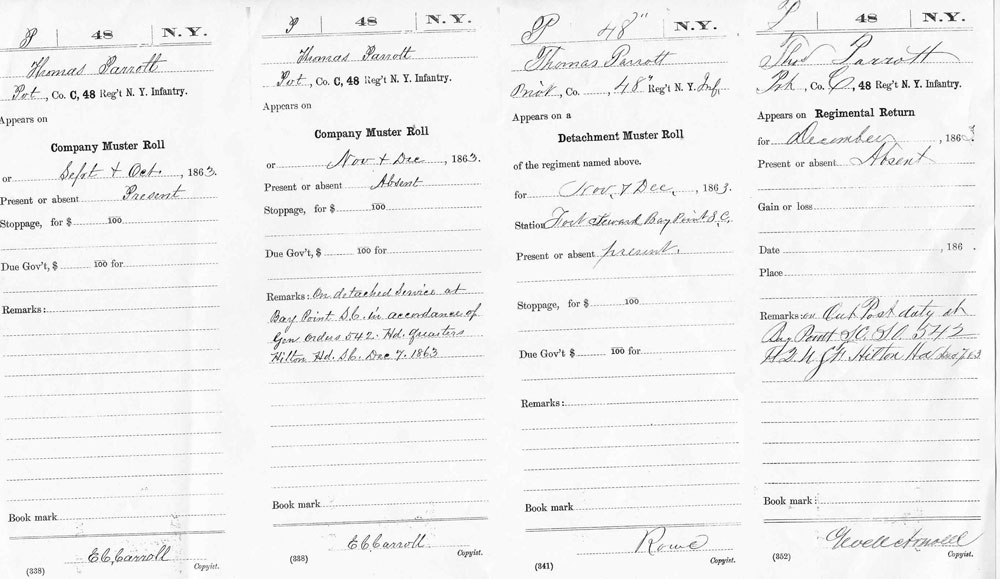 P | 48 | N.Y.
Thomas Parrott
Pvt, Co. C, 48 Reg't N. Y. Infantry.
Appears on
Company Muster Roll
or Sept + Oct., 1863.
Present or absent Present
Stoppage, for $ 100
Due Gov't, $ 100 for
Remarks:
Book mark
E C Carroll
(338) Copyist.
P | 48 | N.Y.
Thomas Parrott
Pvt, Co. C, 48 Reg't N. Y. Infantry.
Appears on
Company Muster Roll
or Nov + Dec, 1863.
Present or absent Absent
Stoppage, for $ 100
Due Gov't, $ 100 for
Remarks: On detached Service at
Bay Point S.C. in accordance of
Gen Orders 542. Hd. Quarters
Hilton Hd. S.C. Dec 7. 1863
Book mark
E C Carroll
(338) Copyist.
P | 48" | N.Y.
Thomas Parrott
Co. 48" Reg't N. Y. Inf.
Appears on a
Detachment Muster Roll
of the regiment named above.
for Nov, & Dec., 1863.
Station Fort Steward Bay Point S.C.
Present or absent present.
Stoppage, for $ 100
Due Gov't $ 100 for
Remarks:
Book mark
Rowe
(341) Copyist.
P | 48 | N.Y.
Thos Parrott
Co. C, 48 Reg't N. Y. Infantry.
Appears on Regimental Return
for December, 1863.
Present or absent Absent
Gain or loss
Date , 186 .
Place
Remarks: on Out Post duty at
Bay Point S.C. S.O. 542
Hilton Hd Dec 7, 63
Book mark:
(352) Copyist.